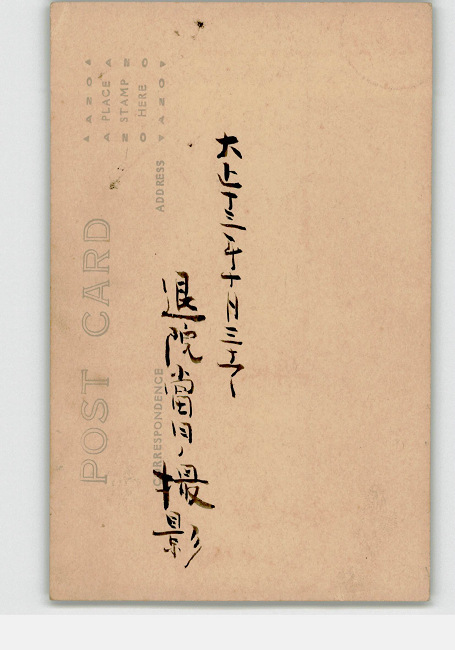 大正十三年十月三十
退院當日ノ撮影
POST CARD
CORRESPONDENCE
ADDRESS
AZO
PLACE
STAMP
HERE
AZO